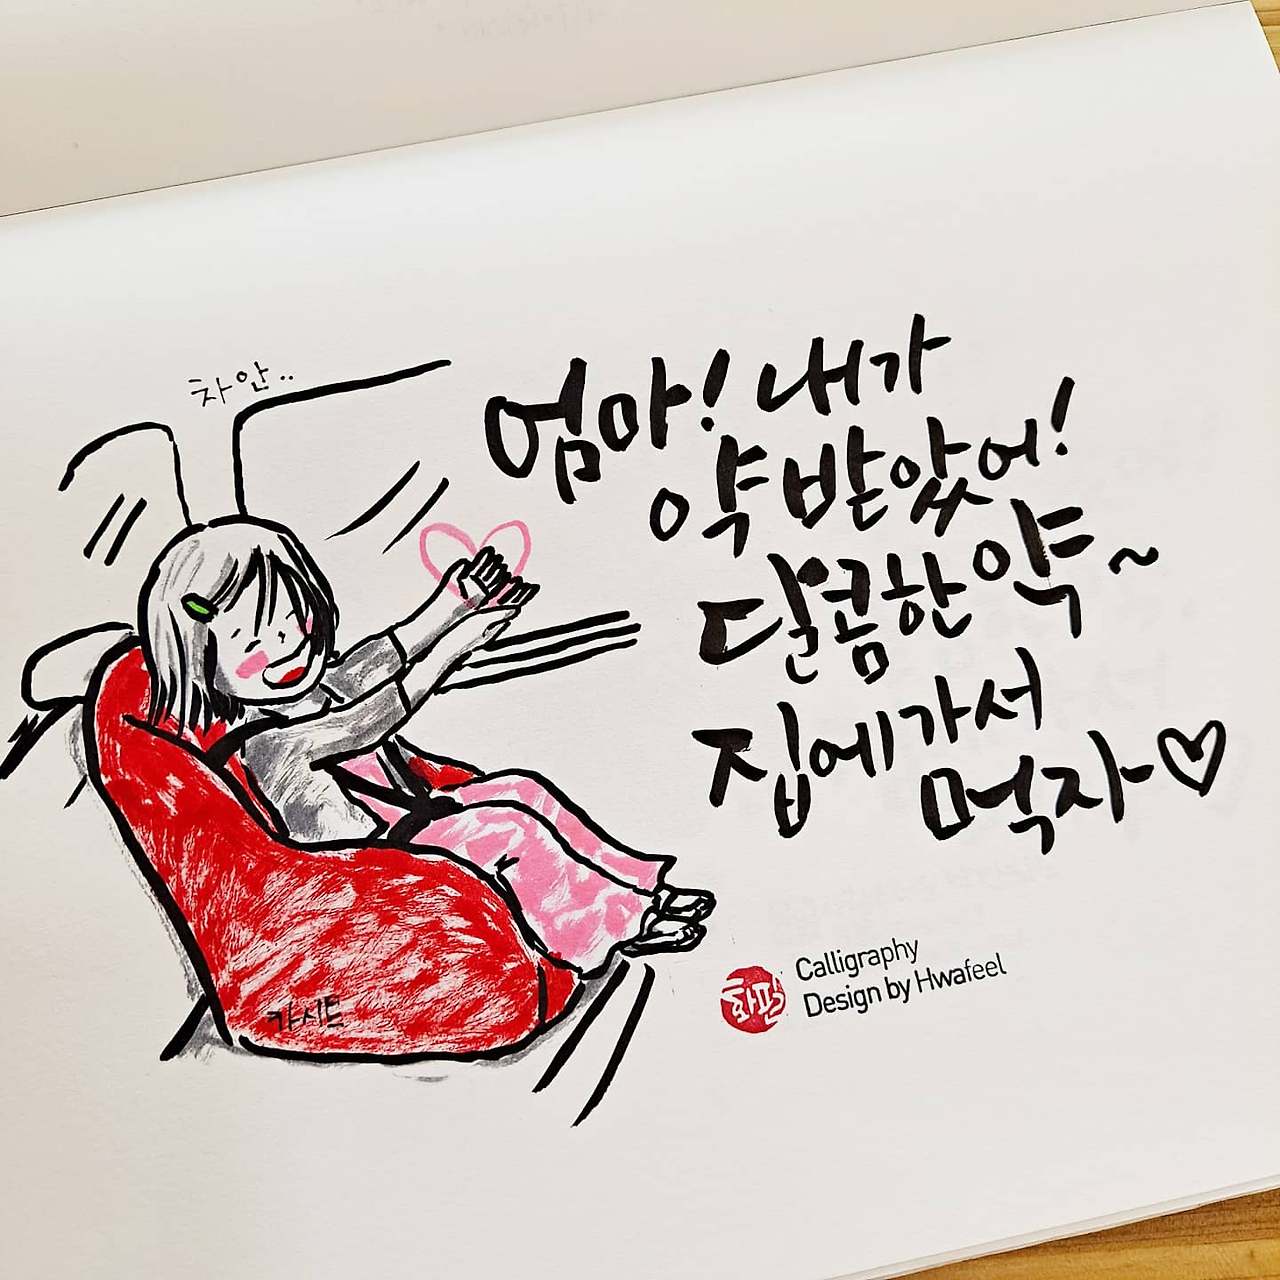 차 안..
엄마! 내가
약 받았어!
달콤한 약~
집에 가서
먹자♡
카시트
화필
Calligraphy
Design by Hwafeel